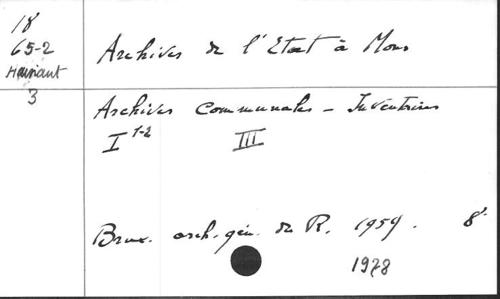 18
65-2
Hainaut
3
Archives de l'Etat à Mons
Archives communales - Inventaires
I 1-2 III
Brux. arch. gén. du R. 1959. 8°
1978